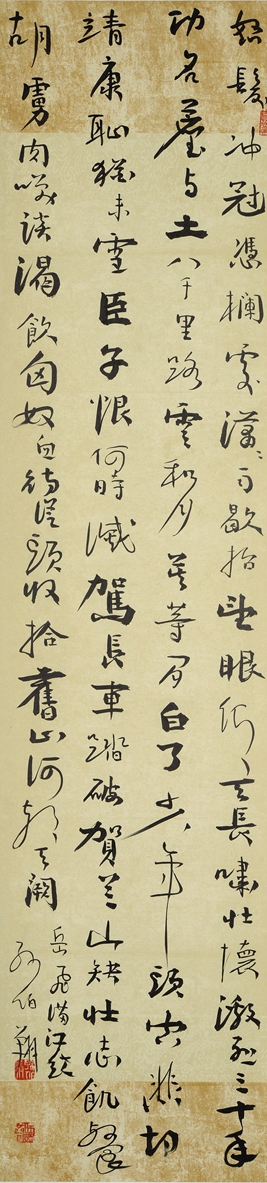 怒髮冲冠憑欄處潇〻雨歇抬望眼仰〻天長嘯壯懷激烈三十
功名塵与土八千里路雲和月莫等閑白了少年頭空悲切
靖康恥猶未雪臣子恨何時滅駕長車踏破賀兰山缺壯志飢餐
胡虜肉笑談渴飲匈奴血待從頭收拾舊山河朝天闕
岳飛滿江紅
孙伯翔